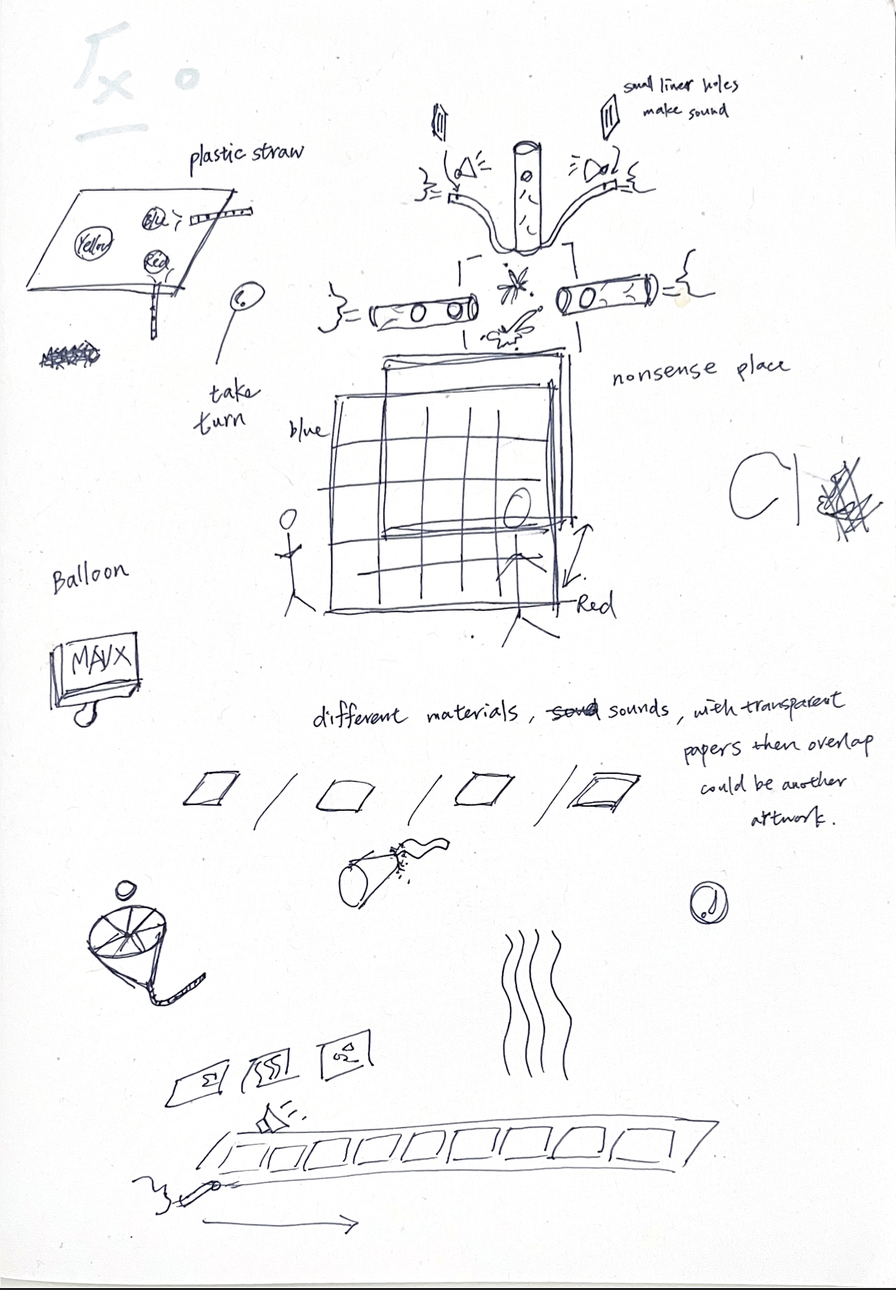 plastic straw
small liner holes
make sound
Blue
Yellow
Red
take
turn
nonsense place
blue
Red
Balloon
different materials, sounds, with transparent
papers then overlap
could be another
artwork.